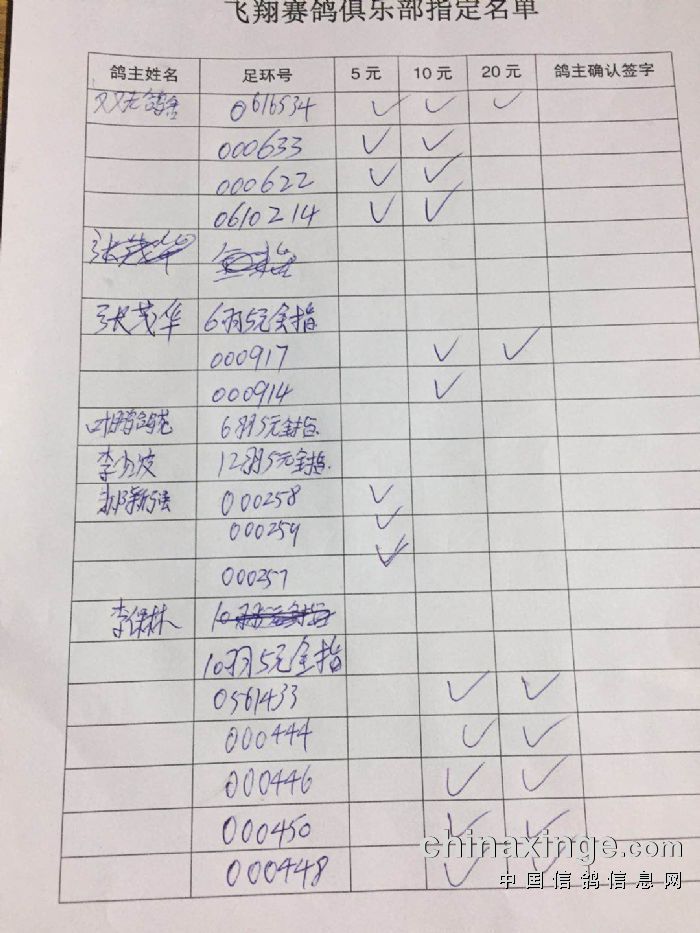 飞翔赛鸽俱乐部指定名单
鸽主姓名 足环号 5元 10元 20元 鸽主确认签字
双天鸽舍 0616534 ✓ ✓ ✓
000633 ✓ ✓
000622 ✓ ✓
0610214 ✓ ✓
张茂华
张茂华 6羽5元全指
000917 ✓ ✓
000914 ✓
6羽5元全指
李少波 12羽5元全指
000258 ✓
000259 ✓
000257 ✓
李保林
10羽5元全指
0561433 ✓ ✓
000444 ✓ ✓
000446 ✓ ✓
000450 ✓ ✓
000448 ✓ ✓
chinaxinge.com
中国信鸽信息网